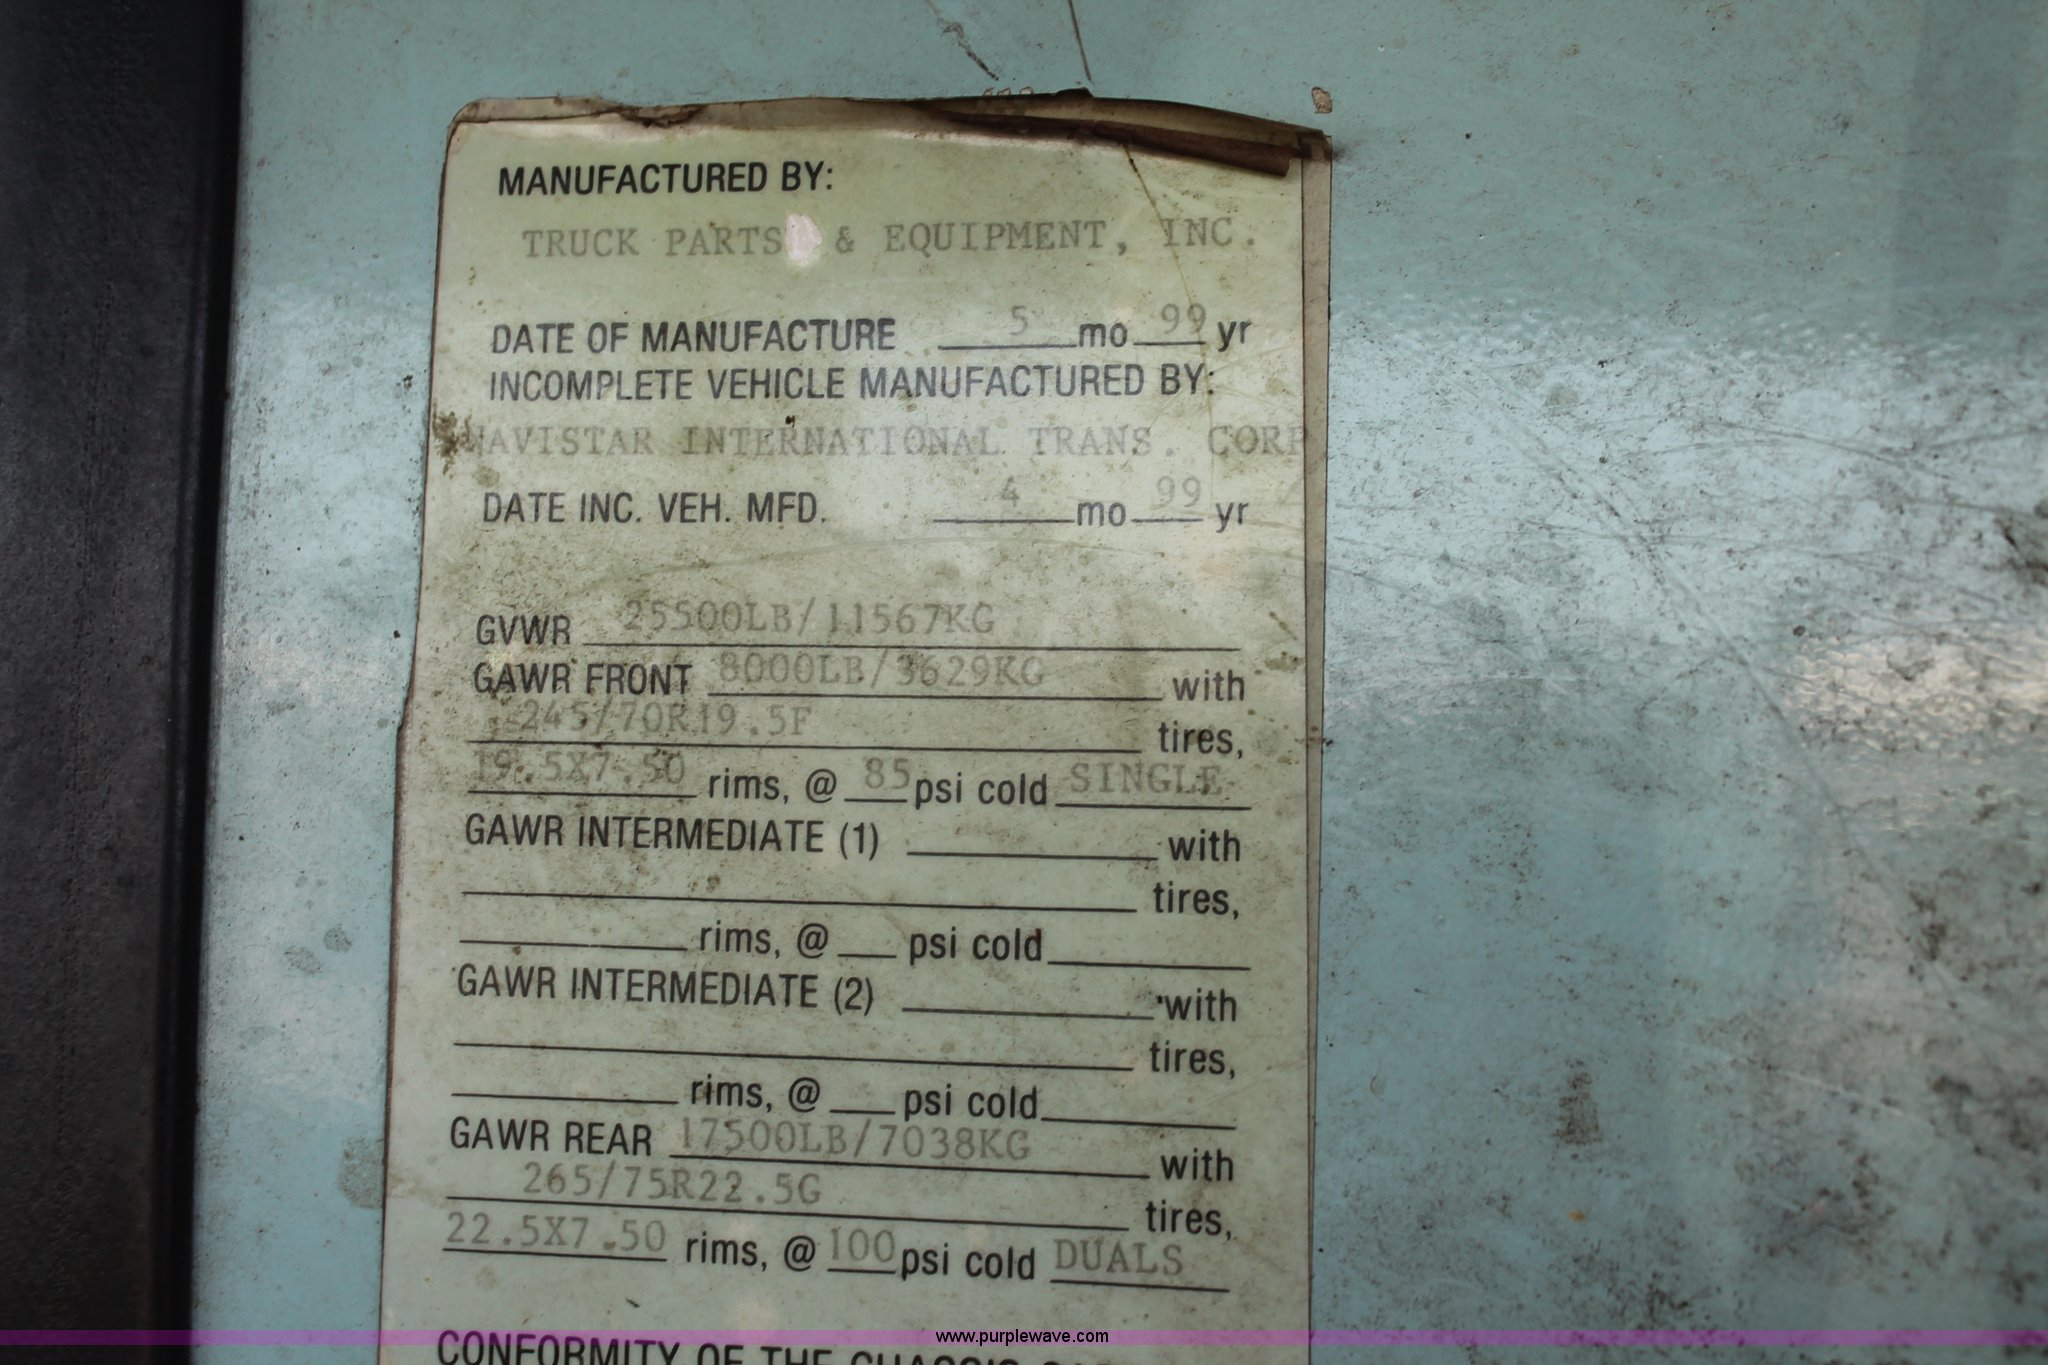 MANUFACTURED BY:
TRUCK PARTS & EQUIPMENT, INC.
DATE OF MANUFACTURE 5 mo 99 yr
INCOMPLETE VEHICLE MANUFACTURED BY:
NAVISTAR INTERNATIONAL TRANS. CORP
DATE INC. VEH. MFD. 4 mo 99 yr
GVWR 25500LB/11567KG
GAWR FRONT 8000LB/3629KG with
245/70R19.5F tires,
19.5X7.50 rims, @ 85 psi cold SINGLE
GAWR INTERMEDIATE (1) with
tires,
rims, @ psi cold
GAWR INTERMEDIATE (2) with
tires,
rims, @ psi cold
GAWR REAR 17500LB/7038KG with
265/75R22.5G tires,
22.5X7.50 rims, @ 100 psi cold DUALS
CONFORMITY OF THE CHASSIS
www.purplewave.com